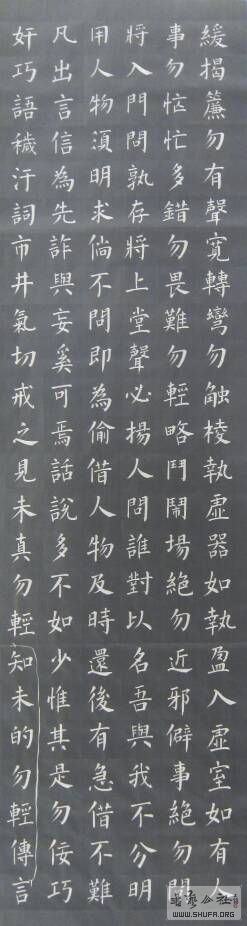 緩揭簾勿有聲寬轉彎勿触棱執虛器如執盈入虛室如有人
事勿忙忙多錯勿畏難勿輕略鬥鬧場絕勿近邪僻事絕勿問
將入門問孰存將上堂聲必揚人問誰對以名吾與我不分明
用人物須明求倘不問即為偷借人物及時還後有急借不難
凡出言信為先詐與妄奚可焉話說多不如少惟其是勿佞巧
奸巧語穢汙詞市井氣切戒之見未真勿輕知未的勿輕傳言
書藝公社
WWW.SHUFA.ORG